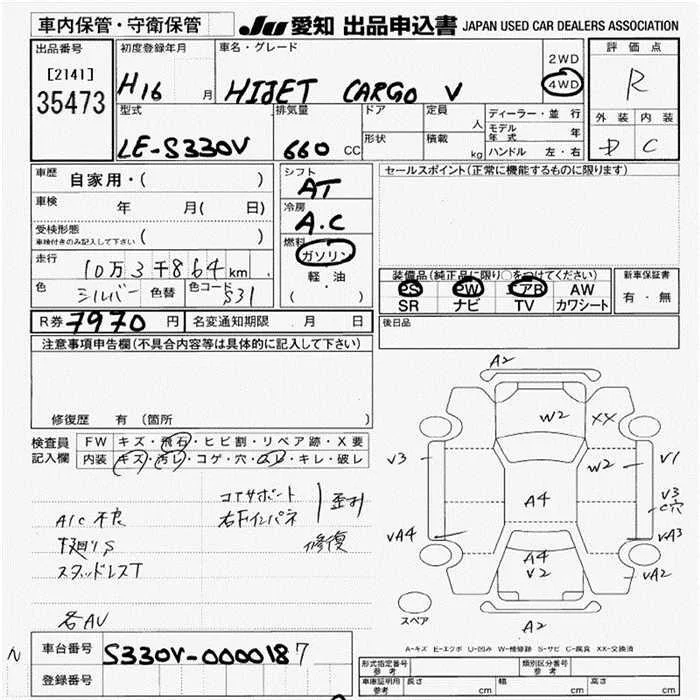 車内保管・守衛保管
JU 愛知 出品申込書 JAPAN USED CAR DEALERS ASSOCIATION
出品番号
[2141]
35473
初度登録年月
H16 月
車名・グレード
HIJET CARGO V
2WD
4WD
評価点
R
外装 内装
D C
型式
LE-S330V
排気量
660 CC
ドア
形状
定員 人
積載 kg
ディーラー・並行
モデル年 年
ハンドル 左・右
車歴 自家用・( )
車検 年 月( 日)
受検形態
車検付きのみ記入して下さい ( )
走行 10万3千864km
色 シルバー 色替 色コード S31
シフト
AT
冷房
A.C
燃料
ガソリン
軽・油
( ・ )
セールスポイント(正常に機能するものに限ります)
装備品(純正品に限り○をつけてください)
PS PW エアB AW
SR ナビ TV カワシート
新車保証書
有・無
後日品
R券 7970 円 名変通知期限 月 日
注意事項申告欄(不具合内容等は具体的に記入して下さい)
修復歴 有 (箇所 )
検査員記入欄
FW キズ・飛石・ヒビ割・リペア跡・X要
内装 キズ・汚レ・コゲ・穴・スレ・キレ・破レ
コアサポート
右FインパネSS
歪み
修復
A/C不良
下廻りS
スタッドレスT
名AV
A2
W2
XX
V3
W2
V1
A4
V3
C穴
VA4
VA3
A4
V2
VA2
スペア
A2
A-キズ E-エクボ U-凹み W-補修跡 S-サビ C-腐食 XX-交換済
車台番号 S330V-0000187
登録番号
形式指定番号 参考
類別区分番号 参考
車庫証明用 参考 長さ cm 幅 cm 高さ cm